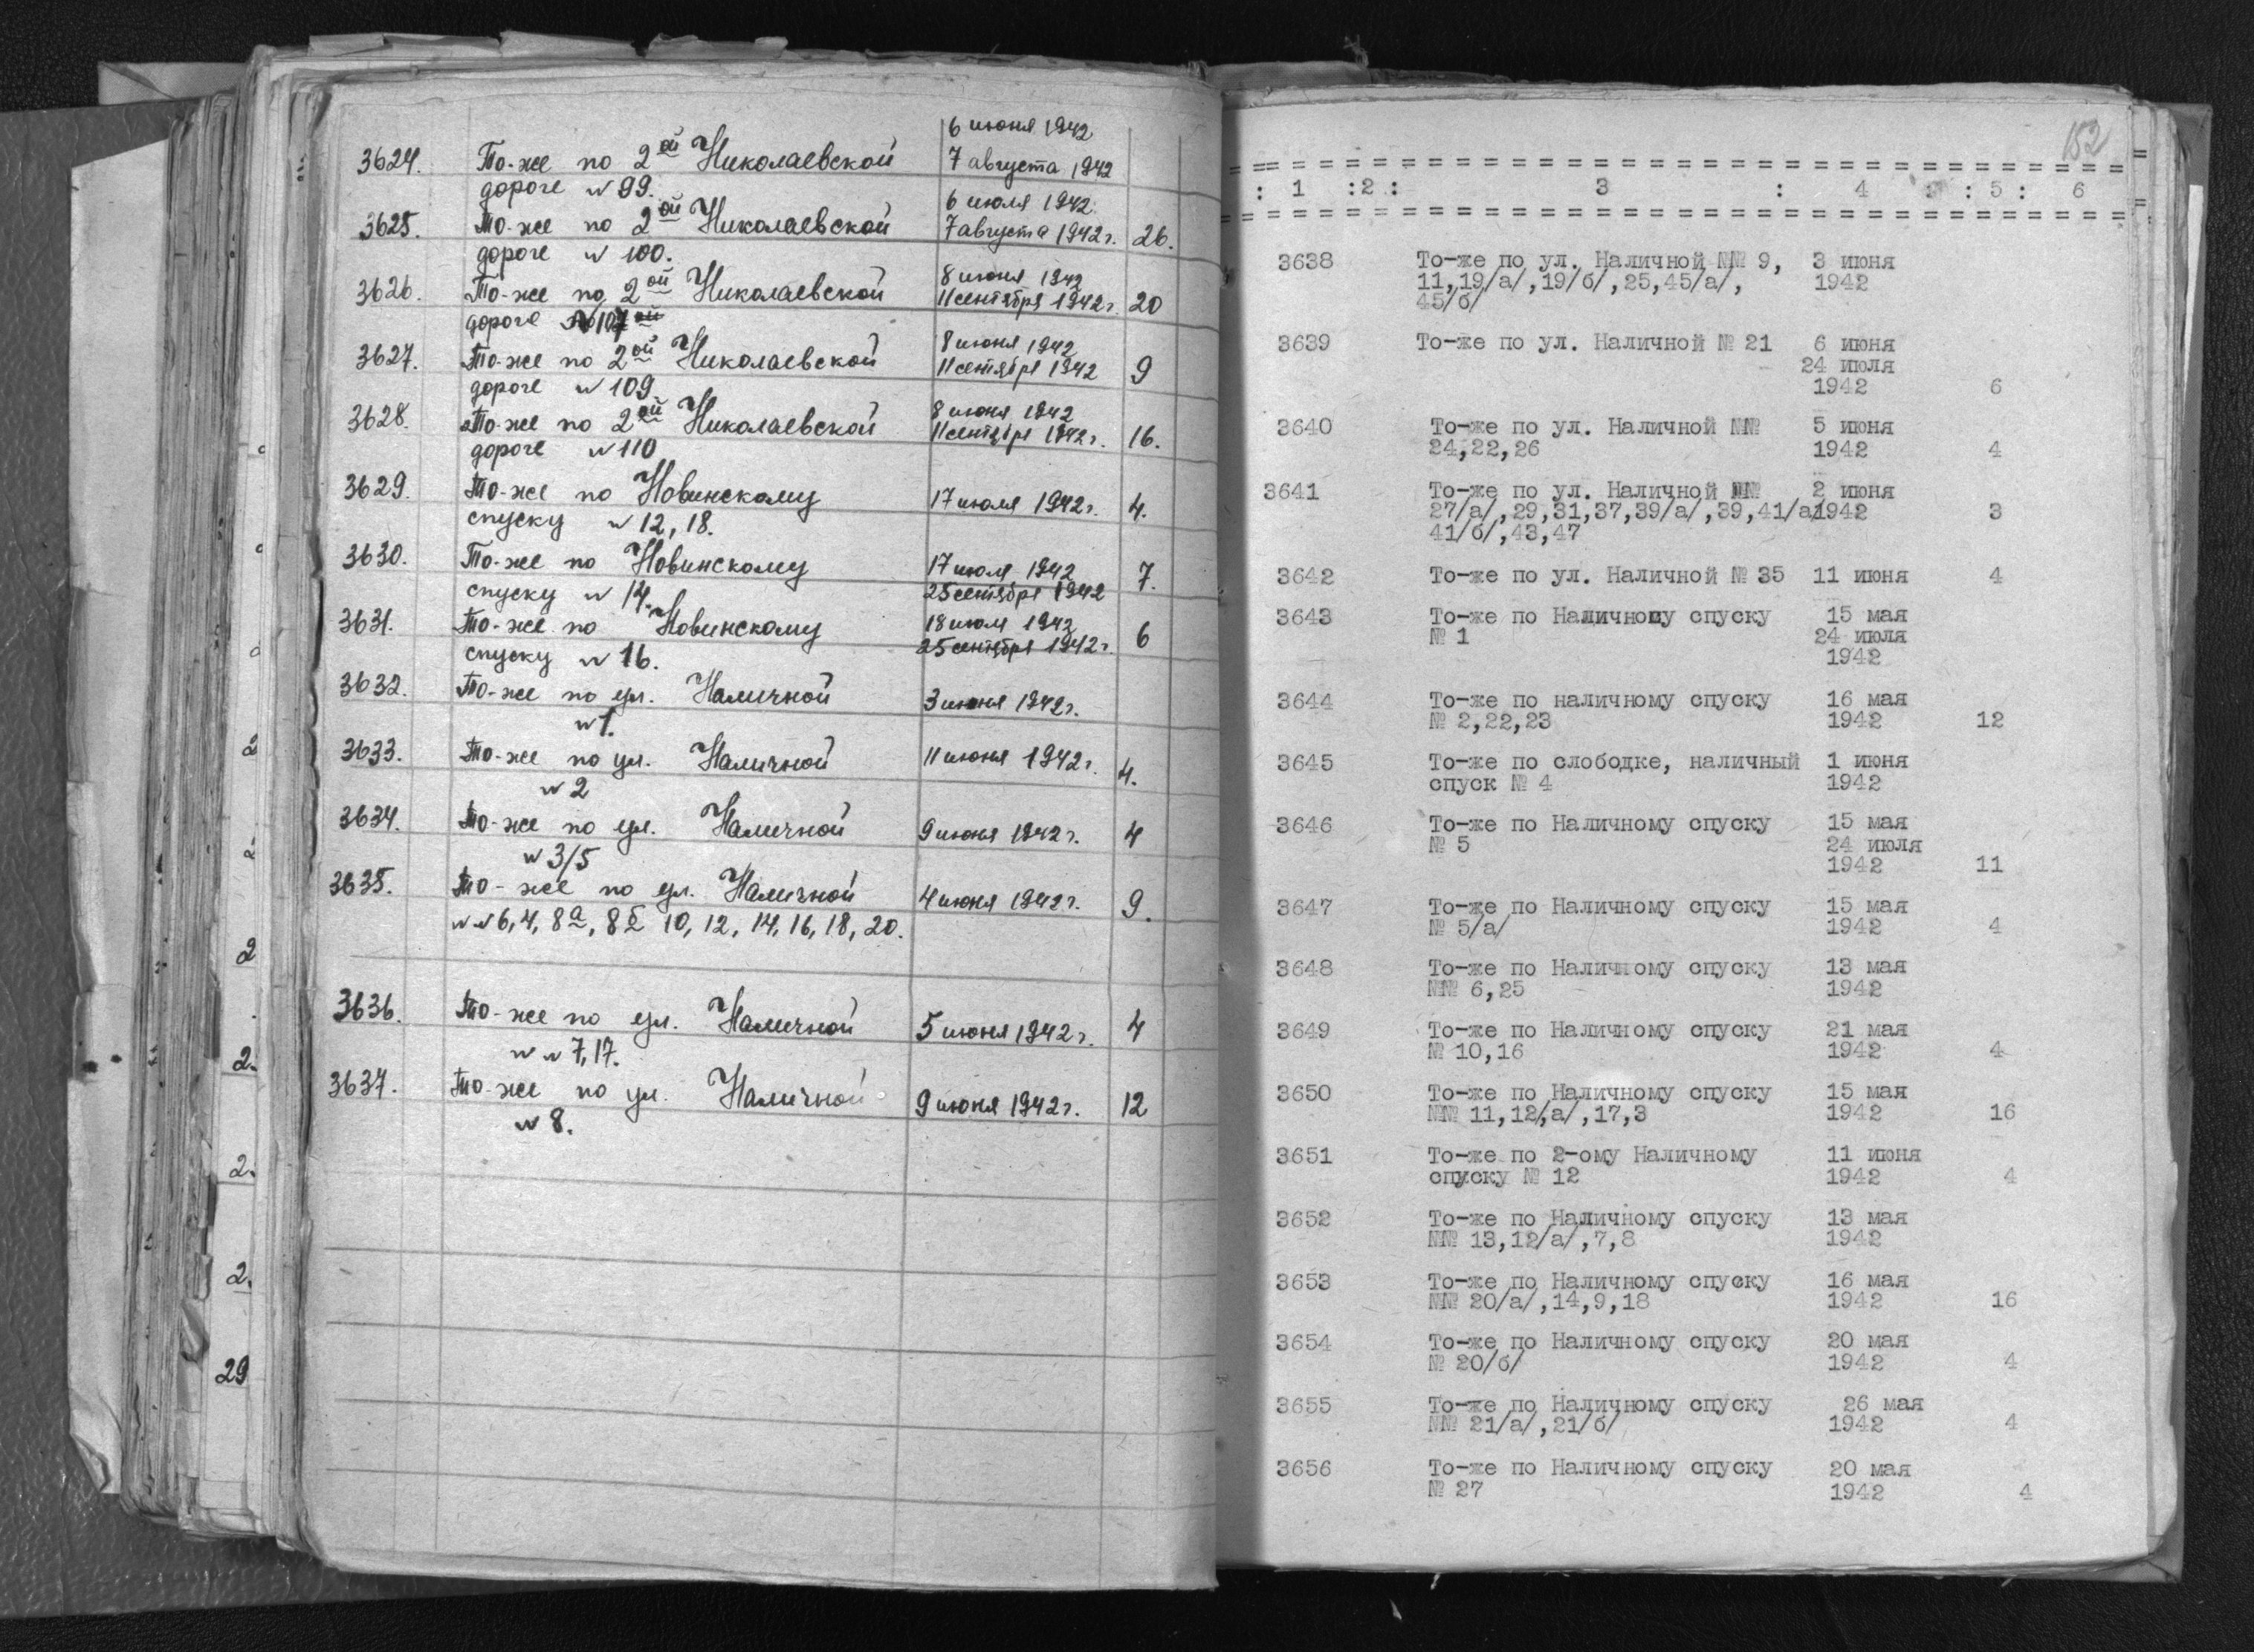 6 июня 1942
3624. То-же по 2ой Николаевской 7 августа 1942
дороге № 99.
6 июля 1942
3625. То-же по 2ой Николаевской 7 августа 1942 г. 26.
дороге № 100.
8 июня 1942
3626. То-же по 2ой Николаевской 11 сентября 1942 г. 20
дороге № 107
8 июня 1942
3627. То-же по 2ой Николаевской 11 сентября 1942 9
дороге № 109
8 июня 1942
3628. То-же по 2ой Николаевской 11 сентября 1942 г. 16.
дороге № 110
3629. То-же по Новинскому 17 июля 1942 г. 4.
спуску № 12, 18.
3630. То-же по Новинскому 17 июля 1942 7.
спуску № 14. 25 сентября 1942
3631. То-же по Новинскому 18 июля 1942 6
спуску № 16. 25 сентября 1942 г.
3632. То-же по ул. Наличной 3 июня 1942 г.
№ 1.
3633. То-же по ул. Наличной 11 июня 1942 г. 4.
№ 2
3634. То-же по ул. Наличной 9 июня 1942 г. 4
№ 3/5
3635. То-же по ул. Наличной 4 июня 1942 г. 9.
№№ 6, 4, 8а, 8б 10, 12, 14, 16, 18, 20.
3636. То-же по ул. Наличной 5 июня 1942 г. 4
№№ 7, 17.
3637. То-же по ул. Наличной 9 июня 1942 г. 12
№ 8.
2
2
2.
2.
2.
29
152
: 1 :2 : 3 : 4 : : 5 : 6
3638 То-же по ул. Наличной №№ 9, 3 июня
11,19/а/,19/б/,25,45/а/, 1942
45/б/
3639 То-же по ул. Наличной № 21 6 июня
24 июля
1942 6
3640 То-же по ул. Наличной №№ 5 июня
24,22,26 1942 4
3641 То-же по ул. Наличной №№ 2 июня
27/а/,29,31,37,39/а/,39,41/а/1942 3
41/б/,43,47
3642 То-же по ул. Наличной № 35 11 июня 4
3643 То-же по Наличному спуску 15 мая
№ 1 24 июля
1942
3644 То-же по наличному спуску 16 мая
№ 2,22,23 1942 12
3645 То-же по слободке, наличный 1 июня
спуск № 4 1942
3646 То-же по Наличному спуску 15 мая
№ 5 24 июля
1942 11
3647 То-же по Наличному спуску 15 мая
№ 5/а/ 1942 4
3648 То-же по Наличному спуску 13 мая
№№ 6,25 1942
3649 То-же по Наличному спуску 21 мая
№ 10,16 1942 4
3650 То-же по Наличному спуску 15 мая
№№ 11,12/а/,17,3 1942 16
3651 То-же по 2-ому Наличному 11 июня
спуску № 12 1942 4
3652 То-же по Наличному спуску 13 мая
№№ 13,12/а/,7,8 1942
3653 То-же по Наличному спуску 16 мая
№№ 20/а/,14,9,18 1942 16
3654 То-же по Наличному спуску 20 мая
№ 20/б/ 1942 4
3655 То-же по Наличному спуску 26 мая
№№ 21/а/,21/б/ 1942 4
3656 То-же по Наличному спуску 20 мая
№ 27 1942 4